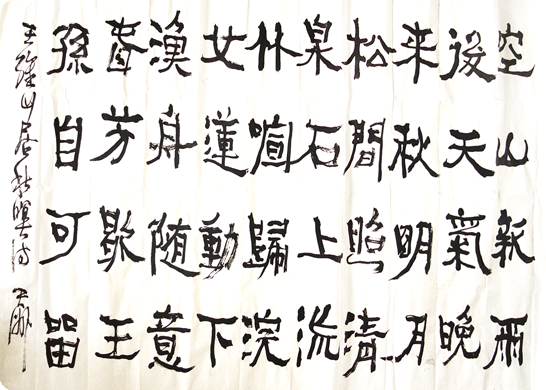 空山新雨
後天氣晚
来秋明月
松間照清
泉石上流
竹喧歸浣
女蓮動下
漁舟随意
春芳歇王
孫自可留
王維山居秋暝詩